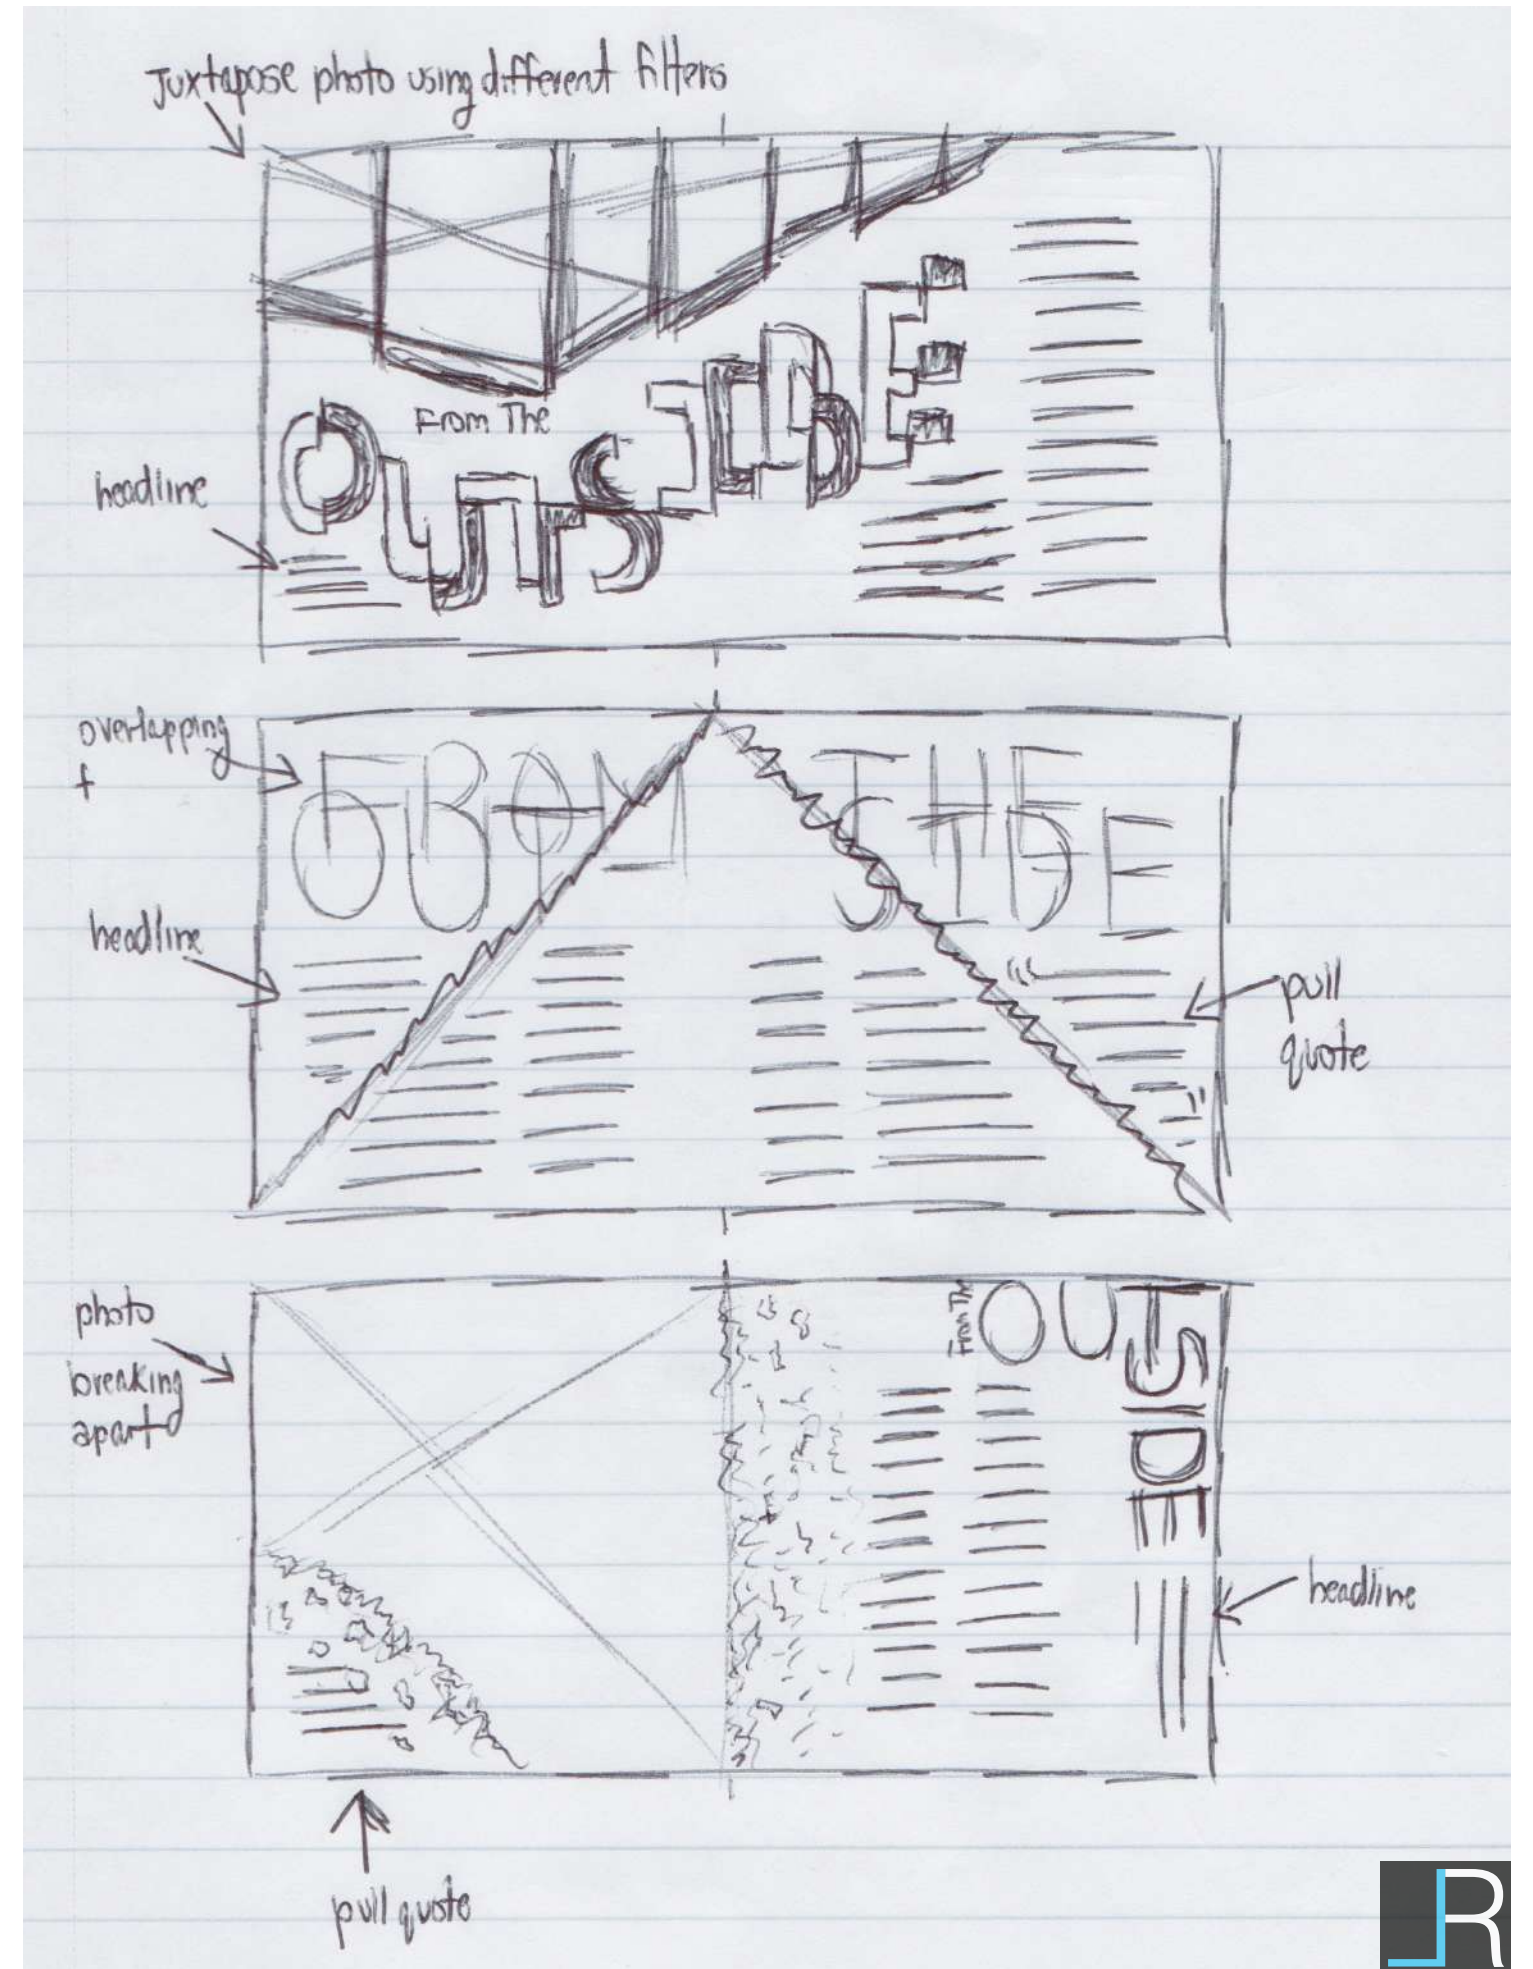 Juxtapose photo using different filters
From The
OUTSIDE
headline
overlapping
+
FROM THE
OUTSIDE
headline
pull
quote
photo
breaking
apart
From The
OUTSIDE
headline
pull quote
JR